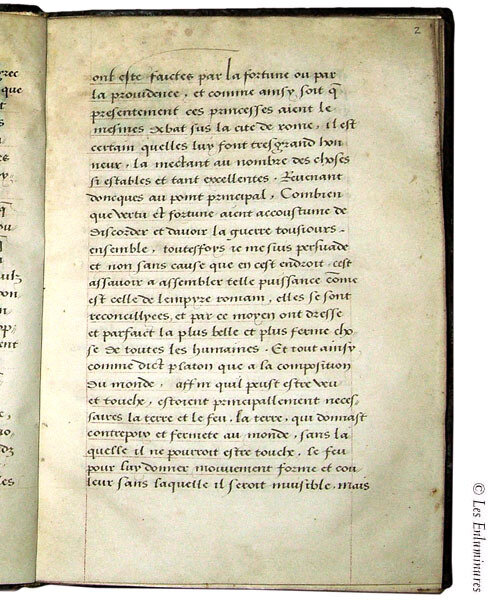 2
ont este faictes par la fortune ou par
la prouidence, et comme ainsy soit q̃
presentement ces princesses aient le
mesmes debat sus la cite de rome, il est
certain quelles luy font tresgrand hon
neur, la mectant au nombre des choses
si estables et tant excellentes. Reuenant
doncques au point principal, Combien
que vertu et fortune aient accoustume de
discorder et dauoir la guerre tousiours
ensemble, toutesfoys ie me suis persuade
et non sans cause que en cest endroit, cest
assauoir a assembler telle puissance cõme
est celle de lempyre romain, elles se sont
reconcillyees, et par ce moyen ont dresse
et parfaict la plus belle et plus ferme cho
se de toutes les humaines. Et tout ainsy
comme dict platon que a la composition
du monde, affin quil peust estre veu
et touche, estoient principallement neces,
saires la terre et le feu, la terre, qui donnast
contrepoix et fermete au monde, sans la
quelle il ne pourroit estre touche, le feu
pour luy donner mouuement forme et cou
leur sans laquelle il seroit inuisible, mais
© Les Enluminures